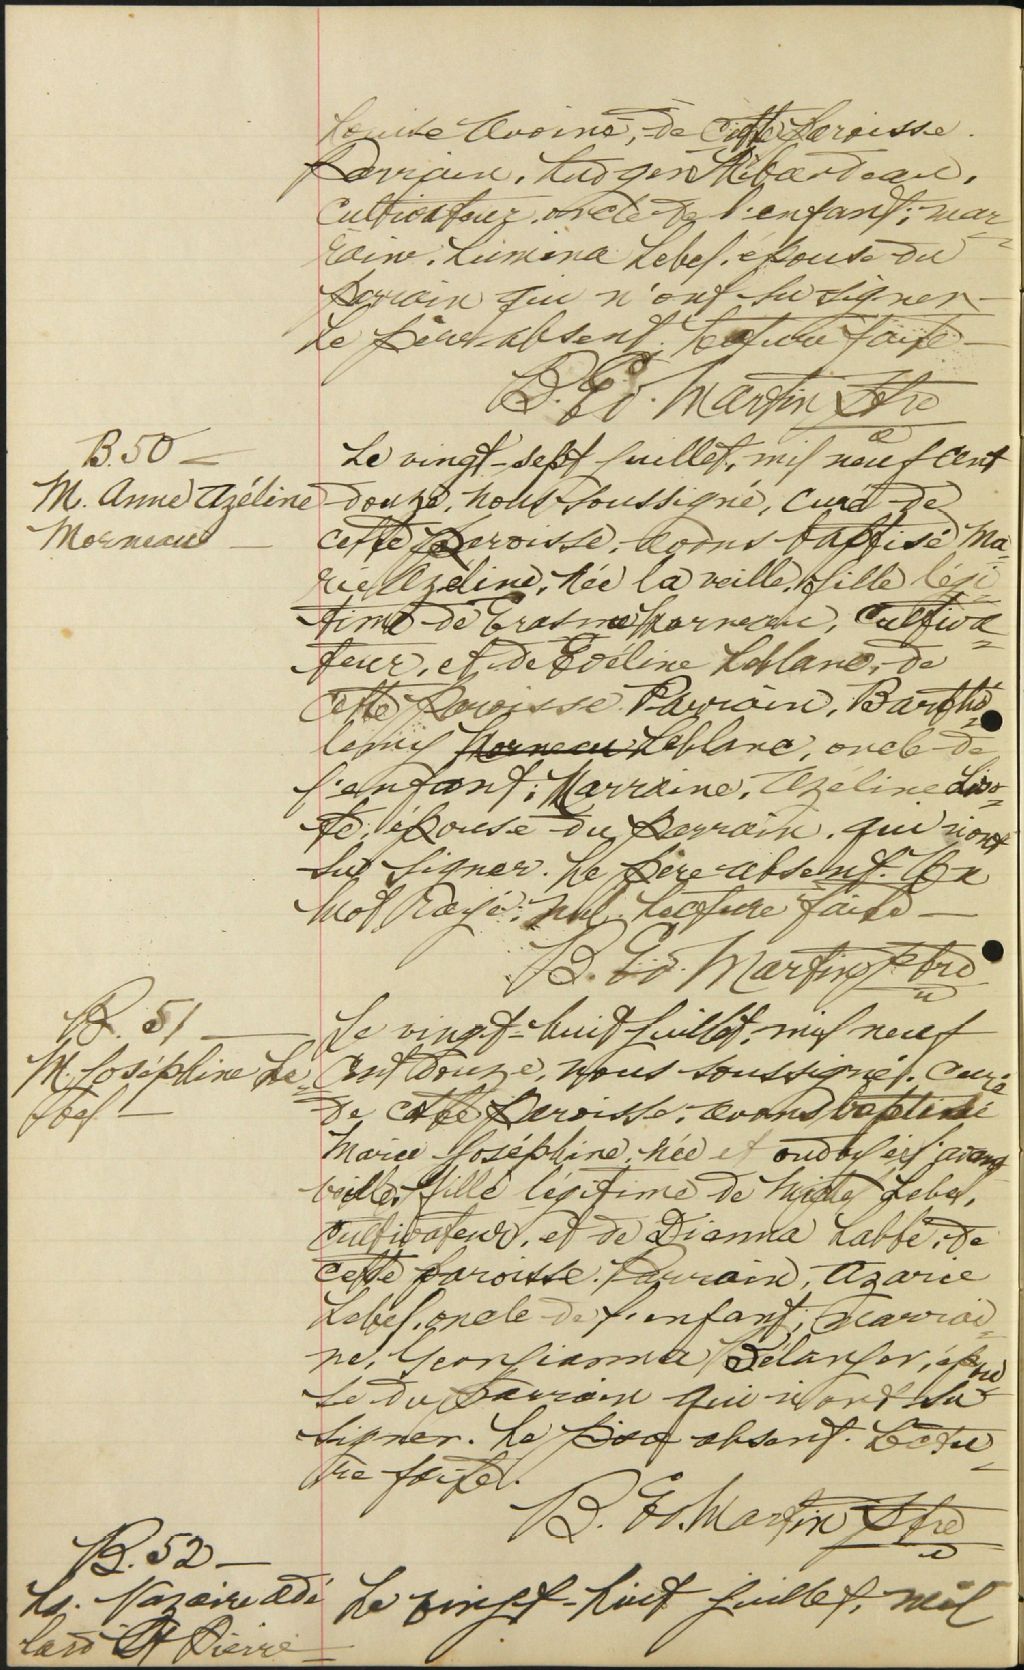 Louise Avoine, de cette paroisse.
Parrain, Ludger Thibaudeau,
cultivateur, oncle de l'enfant; mar-
raine, Lumina Lebel, épouse du
parrain qui n'ont su signer.
Le père absent. Lecture faite —
B. Ed. Martin Ptre
B. 50 —
M. Anne Azéline
Morneau —
Le vingt-sept juillet, mil neuf cent
douze, nous soussigné, curé de
cette paroisse, avons baptisé Ma-
rie Azéline, née la veille, fille légi-
time de Erasme Morneau, cultiva-
teur, et de Evéline Leblanc, de
cette paroisse. Parrain, Bartho-
lemy Morneau Leblanc, oncle de
l'enfant; Marraine, Azéline Lizo-
te, épouse du parrain, qui n'ont
su signer. Le père absent. Un
mot rayé: nul. Lecture faite —
B. Ed. Martin ptre
B. 51 —
M. Joséphine Le-
bel —
Le vingt-huit juillet, mil neuf
cent douze, nous soussigné, curé
de cette paroisse, avons baptisé
Marie Joséphine, née et ondoyée l'avant
veille, fille légitime de Lebel,
cultivateur, et de Dianna Labbé, de
cette paroisse. Parrain, Azarie
Lebel, oncle de l'enfant; marrai-
ne, Georgianna Bélanger, épou-
se du parrain qui n'ont su
signer. Le père absent. Lectu-
re faite.
B. Ed. Martin Ptre
B. 52 —
Ls. Nazaire Adé
lard St Pierre —
Le vingt-huit juillet, mil